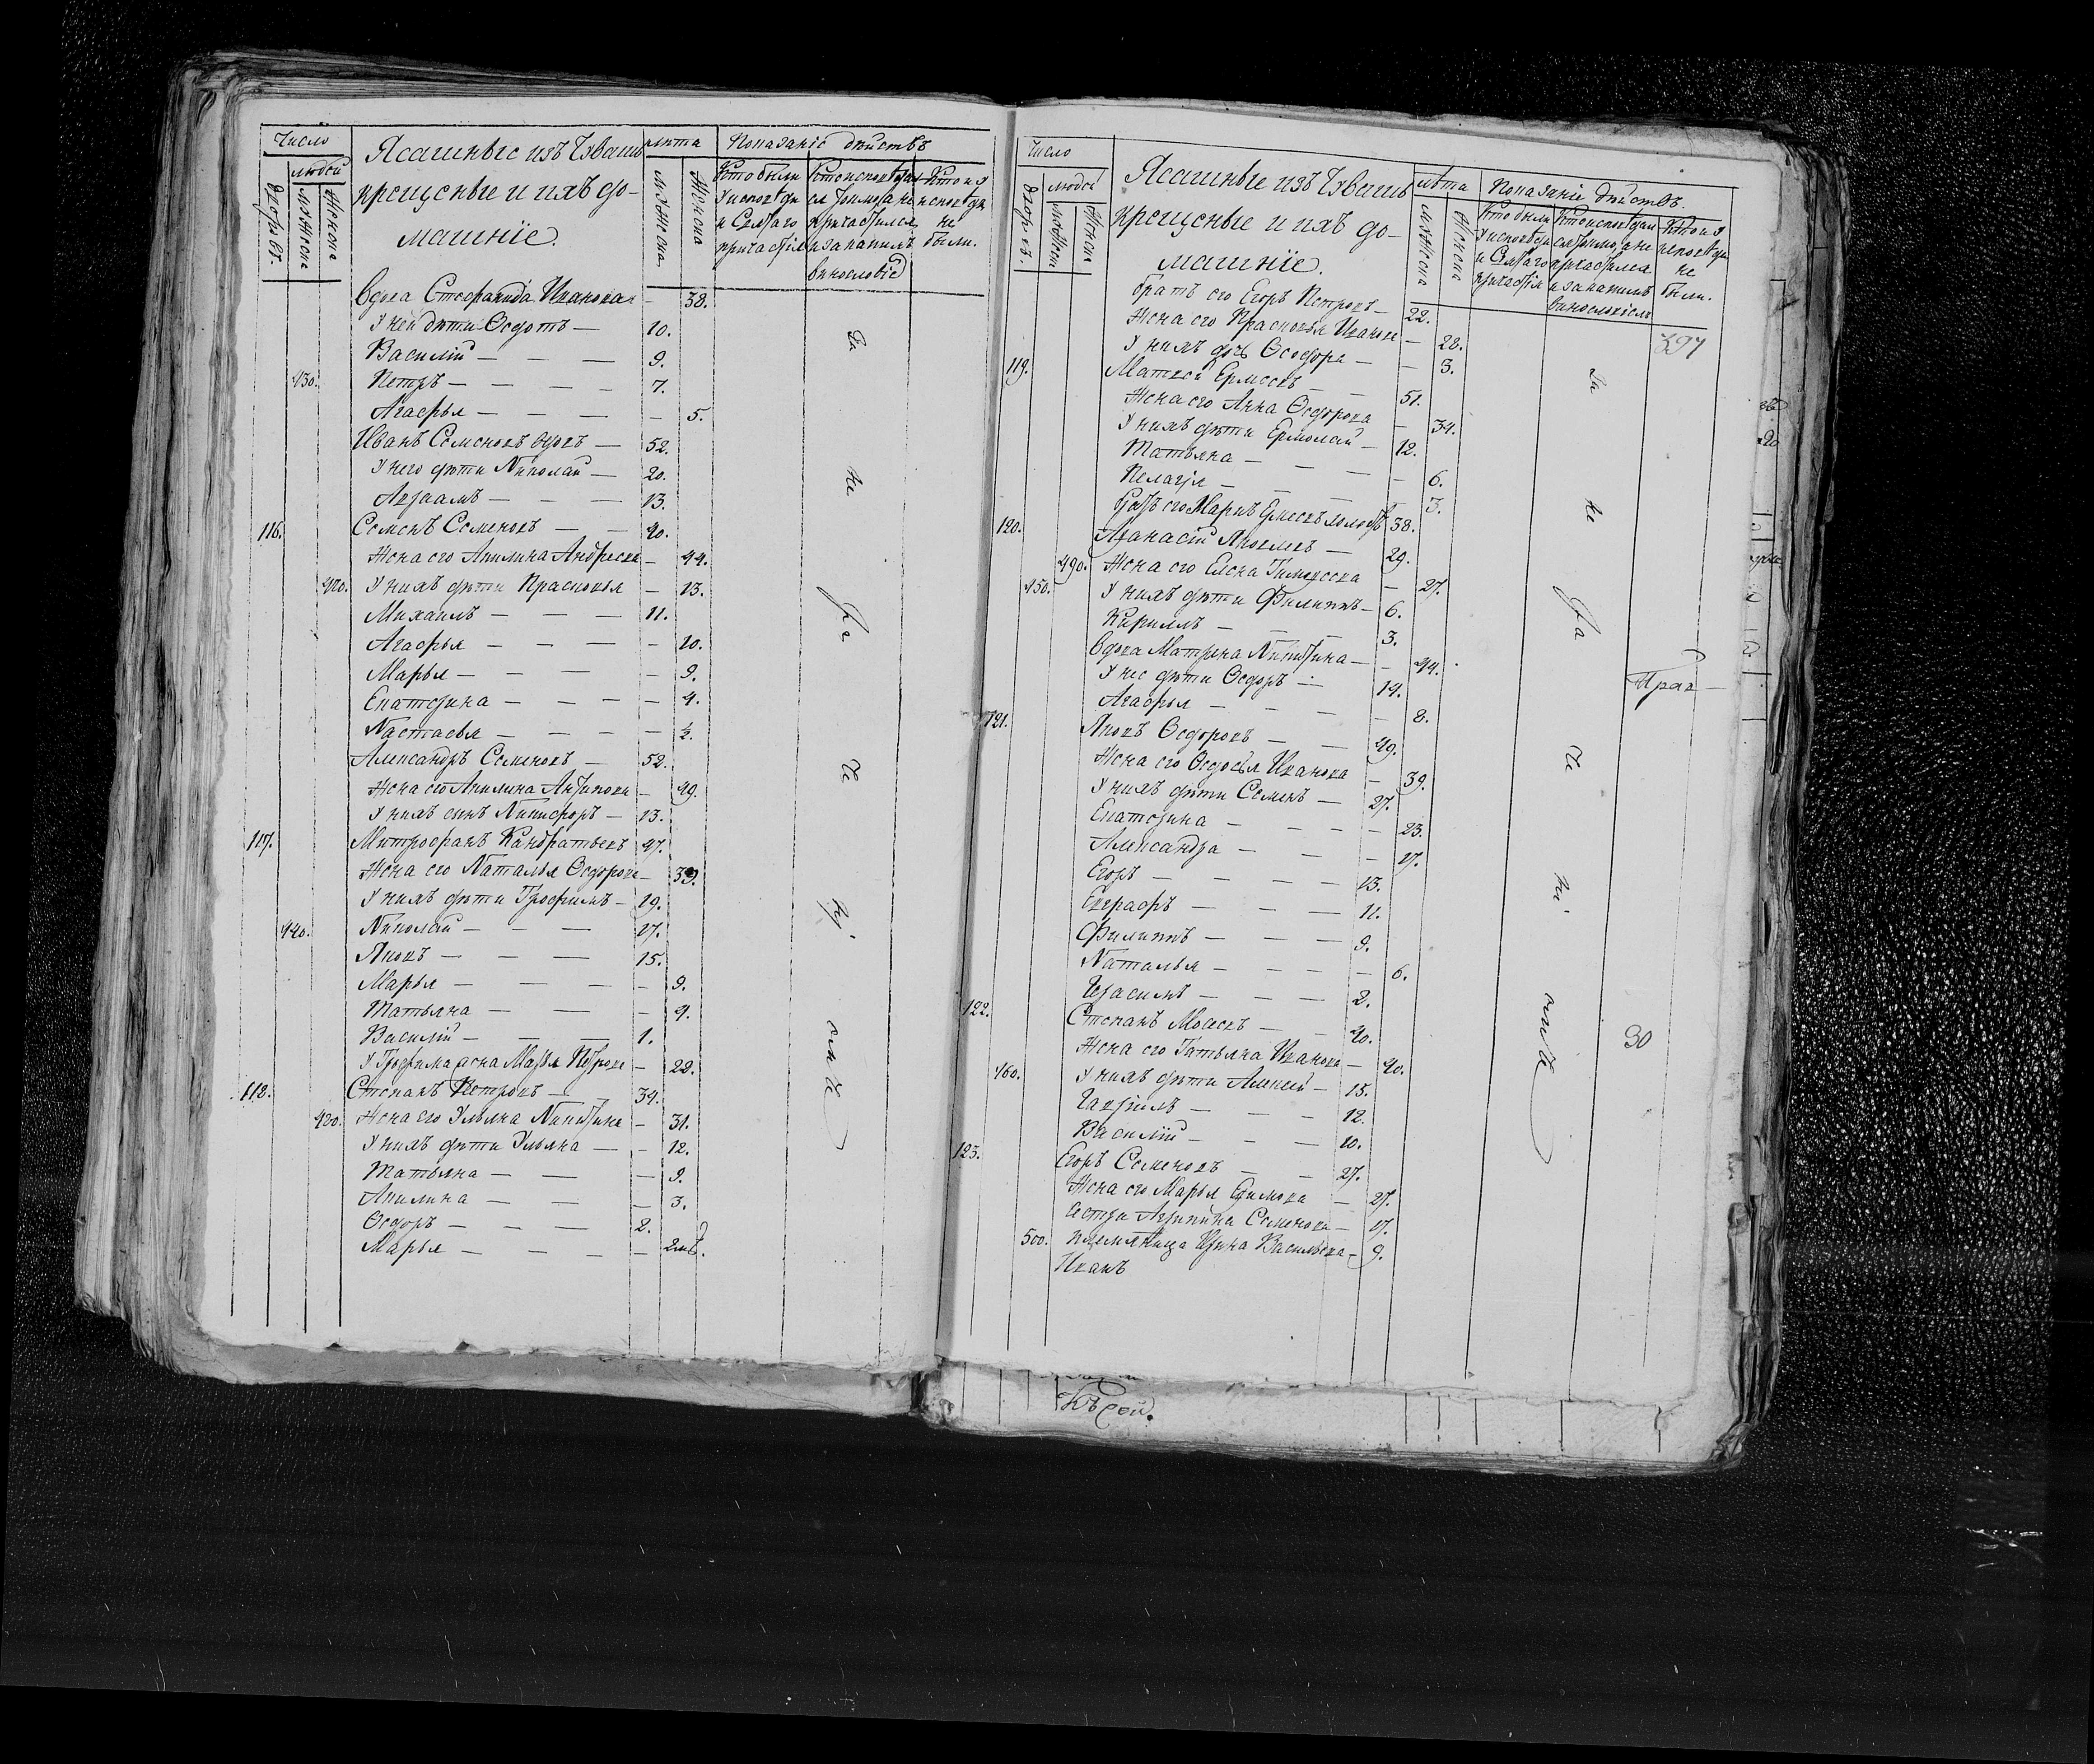 Число
людей
дворовъ.
мужеска
женска
Ясашные изъ Чувашъ
крещеные и ихъ до-
машніе.
лѣта
мужеска
женска
Показаніе дѣйствъ
Кто были
у исповѣди
и Святаго
причастія
Кто исповѣдал
ся токмо, а не
причастился
и за какимъ
винословіе
Кто и у
исповѣди
не
были.
Вдова Стефанида Иванова — 38.
У ней дѣти Ѳедотъ — 10.
Василій — — — 9.
430. Петръ — — — — 7.
Агафья — — — — 5.
Иванъ Семеновъ вдовъ — 52.
У него дѣти Николай — 20.
Авраамъ — — — 13.
116. Семенъ Семеновъ — — 40.
Жена его Акилина Андреева — 44.
410. У нихъ дѣти Прасковья — 13.
Михаилъ — — — 11.
Агафья — — — — 10.
Марья — — — — 9.
Екатерина — — — — 4.
Настасья — — — —
Александръ Семеновъ — 52.
Жена его Акилина Антипова — 49.
У нихъ сынъ Никифоръ — 13.
117. Митрофанъ Кандратьевъ 47.
Жена его Наталья Ѳедорова — 39.
У нихъ дѣти Трофимъ — 19.
440. Николай — — — 17.
Яковъ — — — 15.
Марья — — — — 9.
Татьяна — — — 4.
Василій — — — 1.
У Трофима жена Марья Петрова — 22.
118. Степанъ Петровъ — — 34.
420. Жена его Ульяна Никитина — 31.
У нихъ дѣти Ульяна — — 12.
Татьяна — — — 9.
Акилина — — — 3.
Ѳедоръ — — — 2.
Марья — — — —
За
не
ра
че
ні
емъ
Число
людей
дворовъ.
мужеск
женска
Ясашные изъ Чувашъ
крещеные и ихъ до-
машніе.
лѣта
мужеска
женска
Показаніе дѣйствъ.
Кто были
у исповѣди
и Святаго
причастія
Кто исповѣдал
ся токмо, а не
причастился
и за какимъ
винословіемъ
Кто и у
исповѣди
не
были.
397
братъ его Егоръ Петровъ — 22.
Жена его Прасковья Иванова — 22.
У нихъ дочь Ѳедора — — 3.
119. Матвей Ермеевъ — — 51.
Жена его Анна Ѳедорова — 34.
У нихъ дѣти Ермолай — 12.
Татьяна — — — — 6.
Пелагія — — — — 3.
братъ его Маркъ Ермеевъ холостъ 38.
120. Афанасій Яковлевъ — 29.
490. Жена его Елена Тимофеева — 27.
450. У нихъ дѣти Филиппъ — 6.
Кириллъ — — — 3.
Вдова Матрена Никитина — — 44.
У нее дѣти Ѳедоръ — 14.
Агафья — — — — 8.
121. Яковъ Ѳедоровъ — — 49.
Жена его Ѳедосья Иванова — 39.
У нихъ дѣти Семенъ — 27.
Екатерина — — — — 23.
Александра — — — 17.
Егоръ — — — — 13.
Евграфъ — — — 11.
Филиппъ — — — 9.
Наталья — — — — 6.
Герасимъ — — — 2.
122. Степанъ Моисеевъ — — 40.
Жена его Татьяна Иванова — 40.
460. У нихъ дѣти Алексей — 15.
Гаврилъ — — — 12.
Василій — — — 10.
123. Егоръ Семеновъ — — 27.
Жена его Марья Ефимова — 27.
сестра Агрипина Семенова — 17.
500. племяница Ирина Васильева — 9.
Иванъ
За
не
ра
че
ні
емъ
30